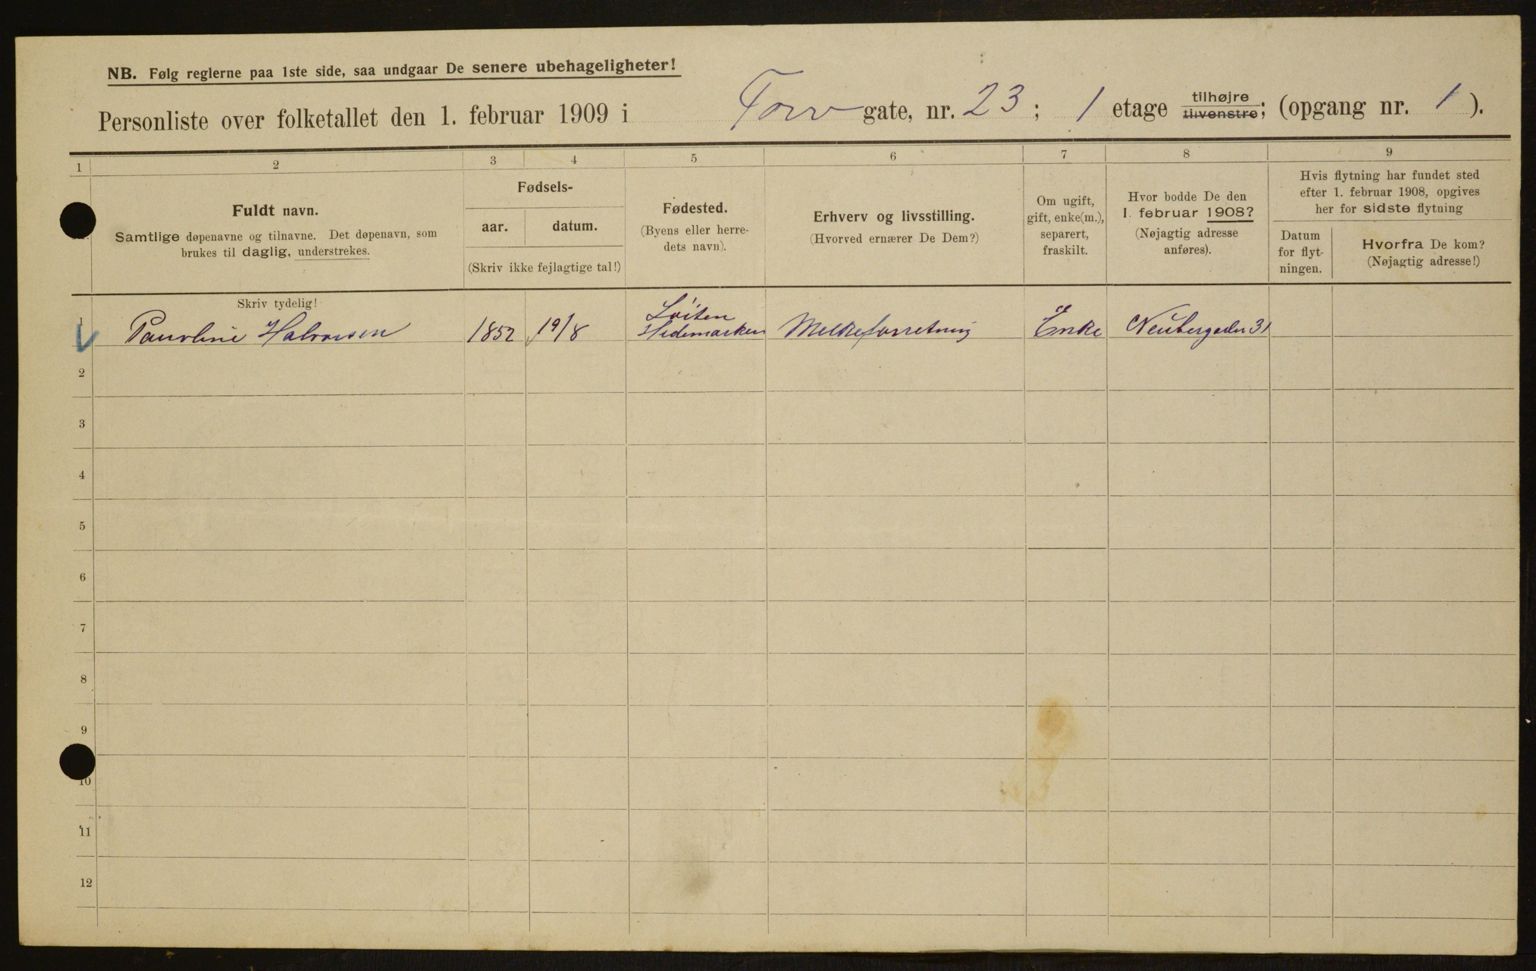 NB. Følg reglerne paa 1ste side, saa undgaar De senere ubehageligheter!
Personliste over folketallet den 1. februar 1909 i Torv gate, nr. 23; 1 etage tilhøjre tilvenstre; (opgang nr. 1).
1 2 3 4 5 6 7 8 9
Fuldt navn.
Samtlige døpenavne og tilnavne. Det døpenavn, som
brukes til daglig, understrekes.
Fødsels-
aar. datum.
(Skriv ikke fejlagtige tal!)
Fødested.
(Byens eller herre-
dets navn).
Erhverv og livsstilling.
(Hvorved ernærer De Dem?)
Om ugift,
gift, enke(m.),
separert,
fraskilt.
Hvor bodde De den
1. februar 1908?
(Nøjagtig adresse
anføres).
Hvis flytning har fundet sted
efter 1. februar 1908, opgives
her for sidste flytning
Datum
for flyt-
ningen.
Hvorfra De kom?
(Nøjagtig adresse!)
Skriv tydelig!
1 Pauline Halvorsen 1852 19/8 Løiten
Hedemarken Melkeforretning Enke 31
2
3
4
5
6
7
8
9
10
11
12